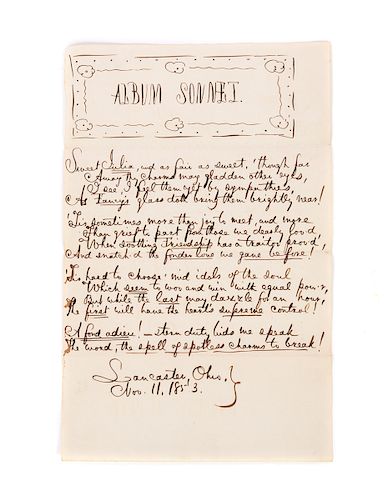 ALBUM SONNET.
Sweet Julia, and as fair as sweet, 'though far
Away thy charms may gladden other eyes,
I see, I feel them yet by sympathies,
As Fancy's glass doth bring them brightly near!
'Tis sometimes more than joy to meet, and more
Than grief to part from those we dearly lov'd
When soothing Friendship has a traitor prov'd
And snatch'd the fonder love we gave before!
'Tis hard to choose 'mid idols of the soul
Which seem to woo and win with equal pow'r,
But while the last may dazzle for an hour,
The first will have the heart's supreme control!
A fond adieu! — stern duty bids me speak
The word, the spell of spotless charms to break!
Lancaster, Ohio,
Nov. 11, 1853.